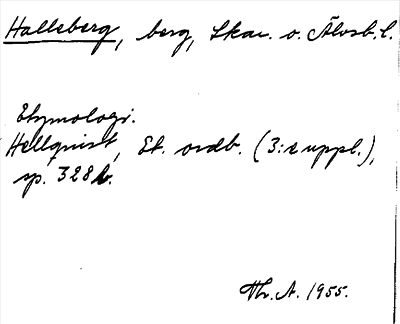 Halleberg, berg, Skar. o. Älvsb. l.
Etymologi.
Hellquist, Et. ordb. (3:e uppl.),
sp. 328b.
Thr. A. 1955.